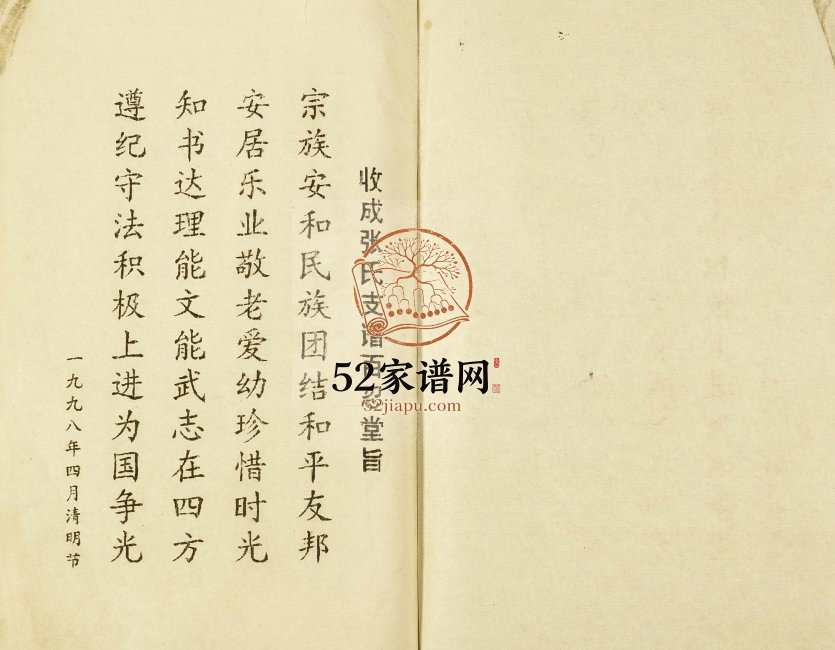 收成张氏支谱百忍堂旨
宗族安和民族团结和平友邦
安居乐业敬老爱幼珍惜时光
知书达理能文能武志在四方
遵纪守法积极上进为国争光
一九九八年四月清明节
52家谱网
52jiapu.com